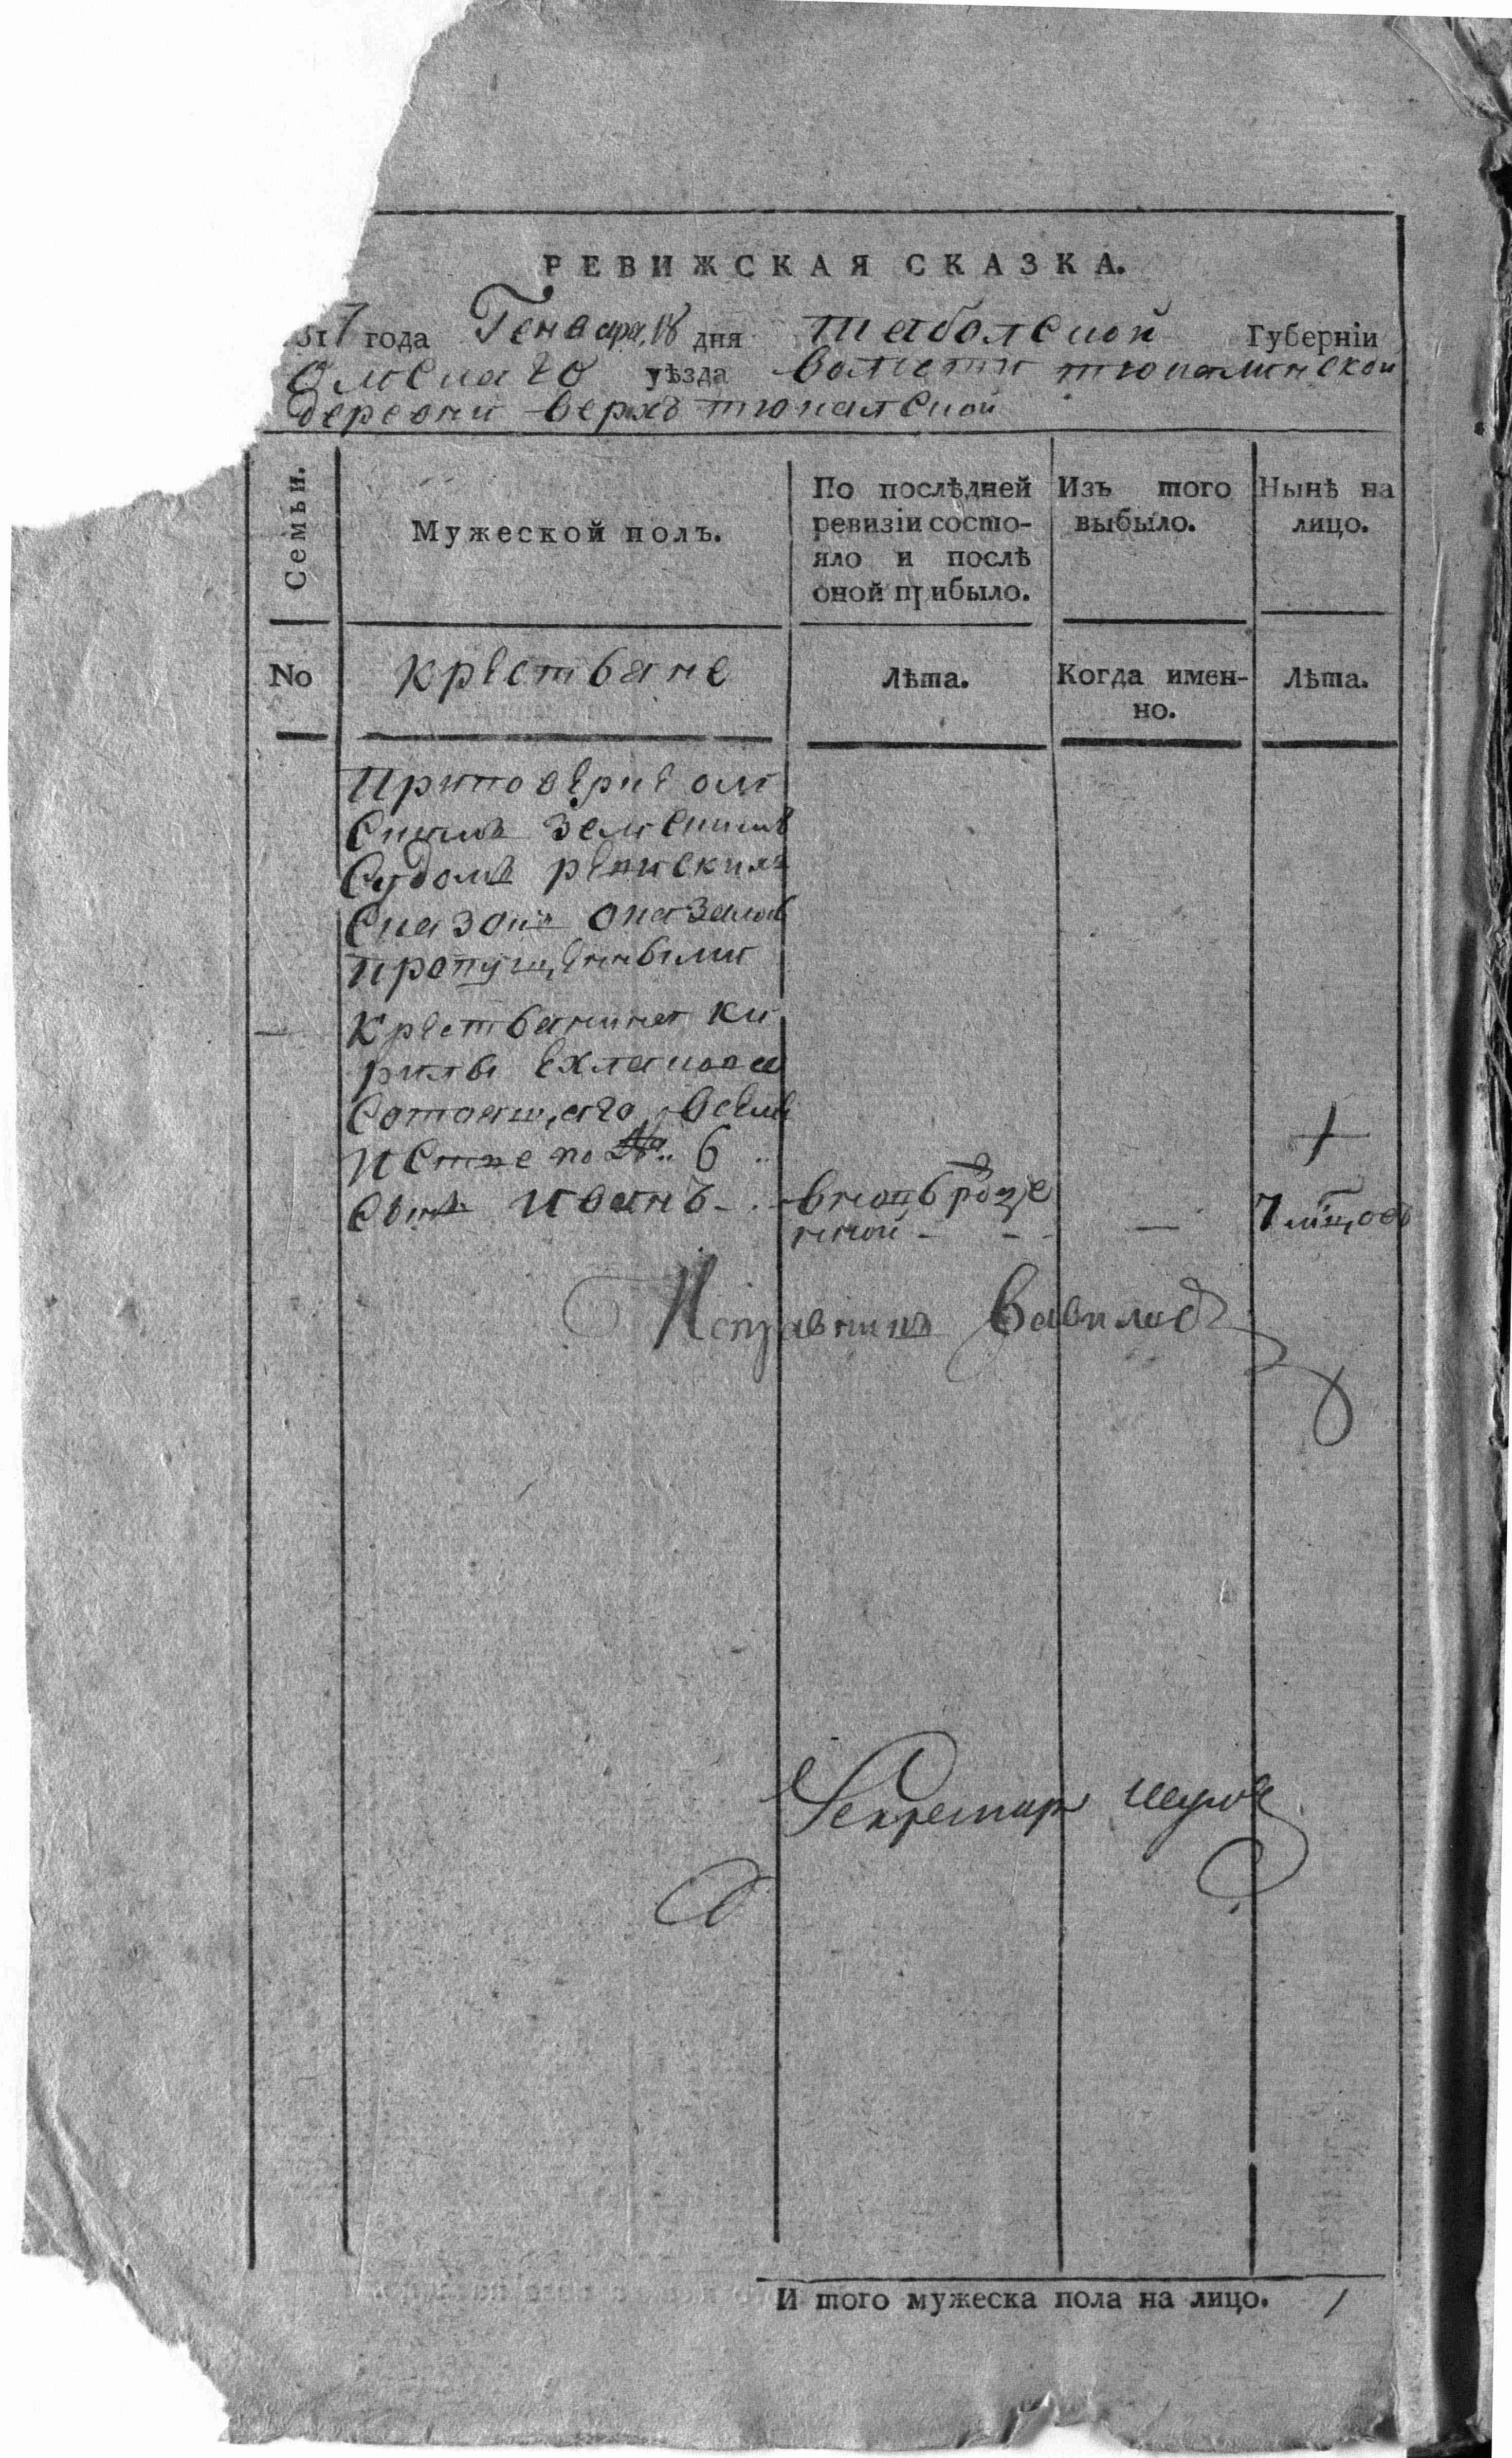 РЕВИЖСКАЯ СКАЗКА.
817 года Генваря 18 дня Тобольской Губерніи
Омскаго уѣзда волости тюкалинской
деревни верхъ тюкалской
Семьи.
Мужеской полъ.
По послѣдней ревизіи состояло и послѣ оной прибыло.
Изъ того выбыло.
Нынѣ на лицо.
No
крестьяне
Лѣта.
Когда именно.
Лѣта.
При поверке ом
скимъ земскимъ
судомъ ревиских
сказокъ оказалось
пропущенными
—
Крестьянина Ки
рилы
состоящаго всем
по № 6
сынъ Иванъ
вновь рожде
нной
—
7 мцовъ
Исправникъ Вавиловъ
Секретарь
И того мужеска пола на лицо. 1